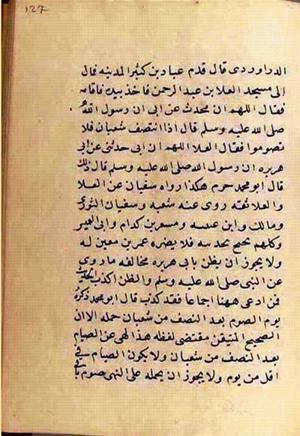 ١٢٧
الدراوردي قال قدم عباد بن كثير المدينة فمال
الى مسجد العلا بن عبد الرحمن فاخذ بيده فاقامه
فقال اللهم ان محدث عن ابي ان رسول الله
صلى الله عليه وسلم قال اذا انتصف شعبان فلا
تصوموا فقال العلا اللهم ان ابي حدثني عن ابي
هريره ان رسول الله صلى الله عليه وسلم قال ذلك
قال ابو محمد حرم هكذا رواه سفيان عن العلا
والعلا ثقة روى عنه شعبه وسفيان الثوري
ومالك وابن عيينه ومسعر بن كدام وابي العميس
وكلهم يحتج بحديثه فلا يضره غمز بن معين له
ولا يجوز ان يظن بابي هريره مخالفه ما روى
عن النبي صلى الله عليه وسلم والظن اكذب الحديث
فمن ادعى ههنا اجماعا فقد كذب قال ابو محمد ذكره
يوم الصوم بعد النصف من شعبان جمله الا ان
الصحيح المتيقن مقتضى لفظه هذا النهي عن الصيام
بعد النصف من شعبان ولا يكون الصيام في
اقل من يوم ولا يجوز ان يحمله على النهي صوم باقي